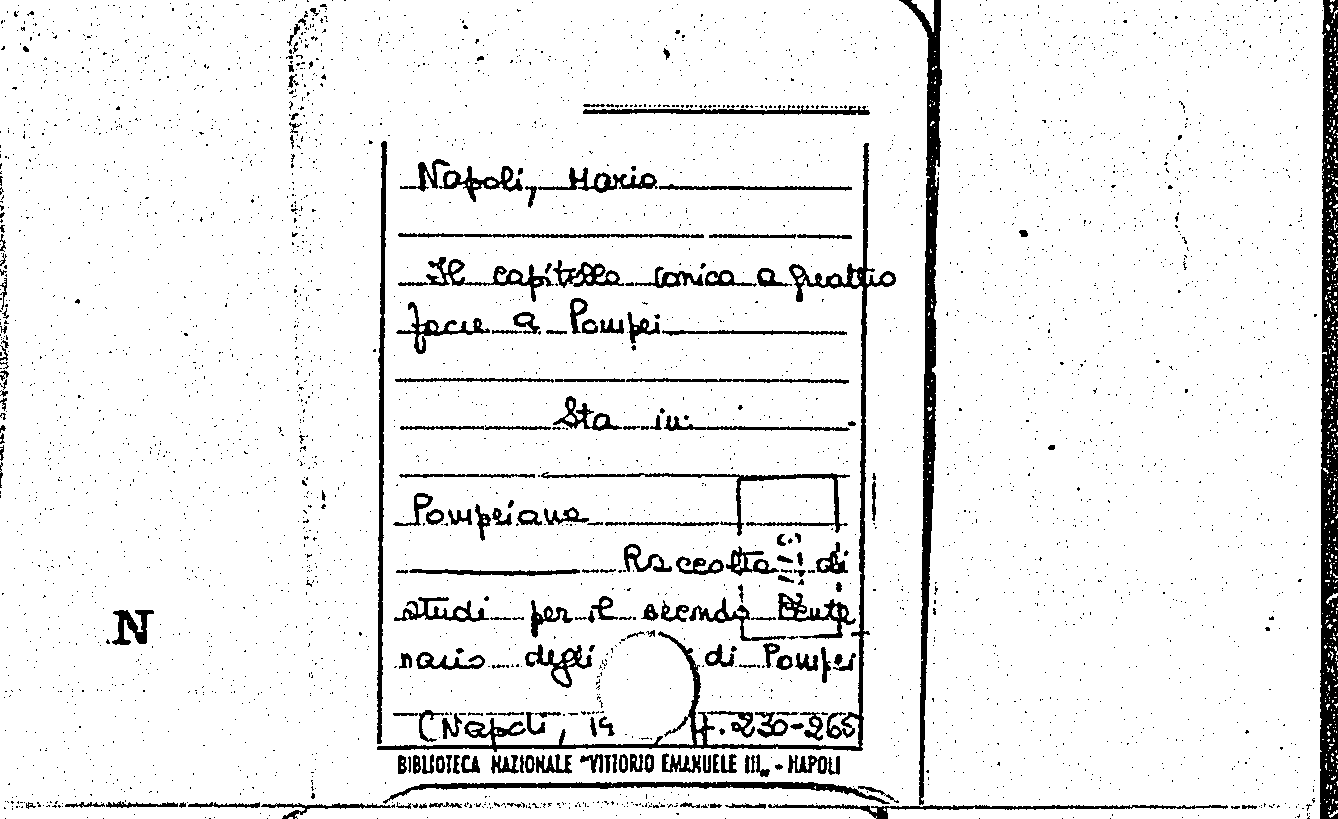 Napoli, Mario
Il capitello ionico a quattro
facce a Pompei
Sta in:
Pompeiana
Raccolta di
studi per il secondo cente
nario degli di Pompei
(Napoli, 19 pp. 230-265
N
BIBLIOTECA NAZIONALE "VITTORIO EMANUELE III„ - NAPOLI